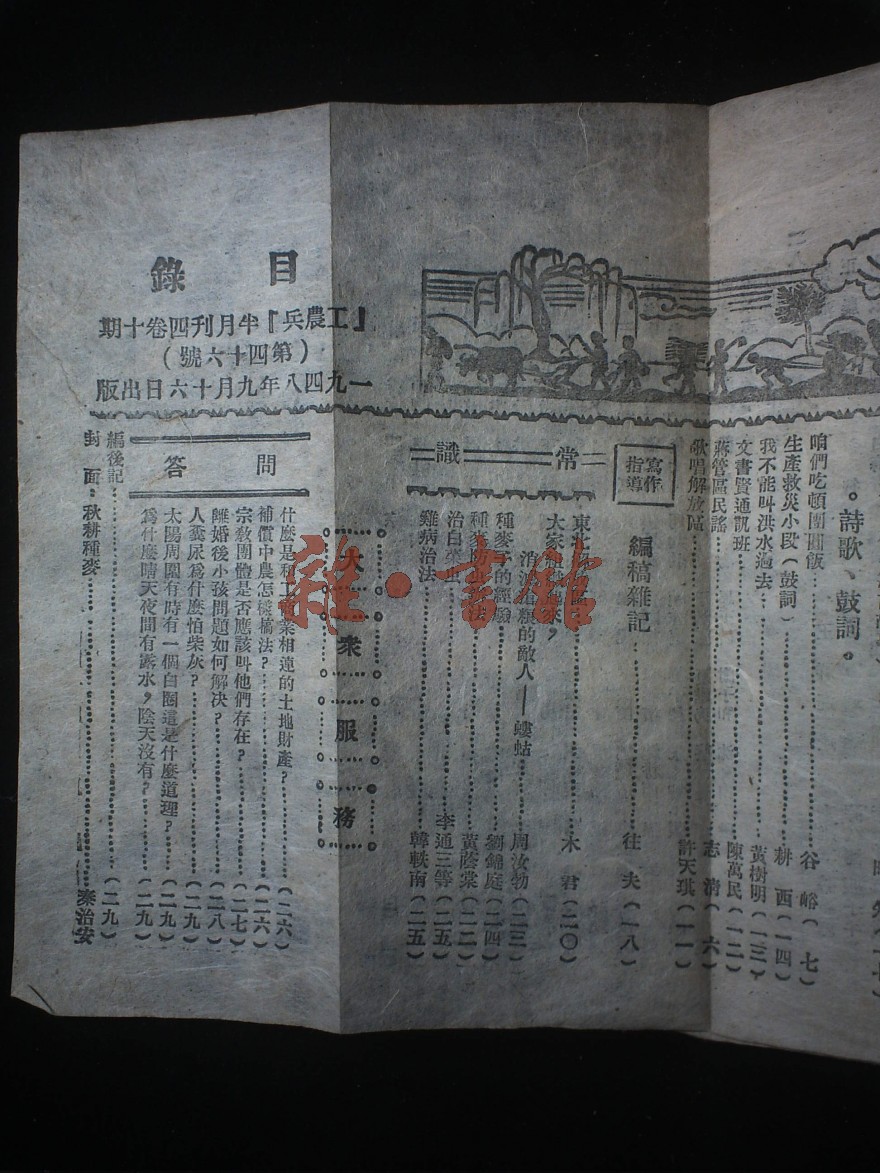 目錄
『工農兵』半月刊四卷十期
（第四十六號）
一九四八年九月十六日出版
。詩歌、鼓詞。
咱們吃頓團圓飯……谷峪（七）
生產救災小段（鼓詞）……耕西（一四）
我不能叫洪水過去……黃樹明（一三）
文書賢通凱班……陳萬民（一二）
蔣管區民謠……志清（六）
歌唱解放區……許天琪（一一）
寫作指導
編稿雜記……往夫（一八）
常識
東北……木君（二〇）
大家
消滅　的敵人——螻蛄……周汝勃（二三）
種麥子的經驗……劉錦庭（二四）
種麥防　法……黃蔭棠（二二）
治白菜虫……李通三等（二五）
雞病治法……韓軼南（二五）
大衆服務
問答
什麼是和工商業相連的土地財產？……（二六）
補償中農怎樣搞法？……（二六）
宗教團體是否應該叫他們存在？……（二七）
離婚後小孩問題如何解决？……（二八）
人糞尿爲什麼怕柴灰？……（二九）
太陽周圍有時有一個白圈這是什麼道理？……（二九）
爲什麼晴天夜間有露水，陰天沒有？……（二九）
編後記……（二九）
封面：秋耕種麥……秦治安
雜·書館